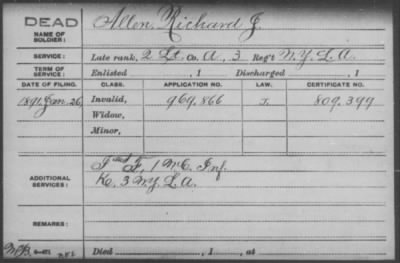 DEAD
NAME OF SOLDIER: Allen, Richard J.
SERVICE: Late rank, 2 Lt. Co. A, 3 Reg't N.Y.L.A.
TERM OF SERVICE: Enlisted , 1 Discharged , 1
DATE OF FILING. CLASS. APPLICATION NO. LAW. CERTIFICATE NO.
1891 Jan. 26, Invalid, 969.866 J. 809.399
Widow,
Minor,
ADDITIONAL SERVICES: F, 1 N.C. Inf.
K. 3 N.Y.L.A.
REMARKS:
Died , 1 , at